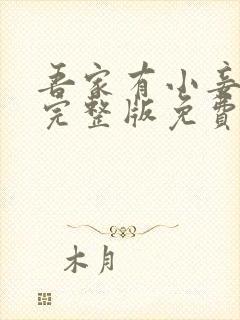 吾家有小妾
完整版免費
木月